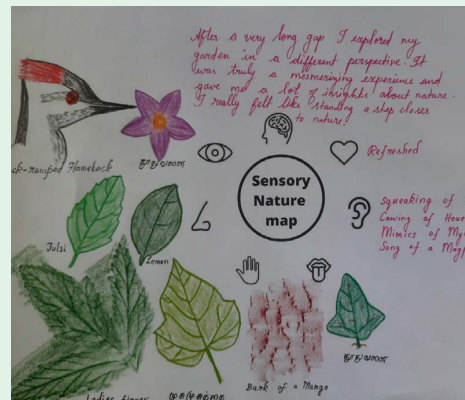 After a very long gap I explored my
garden in a different perspective. It
was truly a mesmerizing experience and
gave me a lot of insights about nature.
I really felt like standing a step closer
to nature.
ck-rumped Flameback
தூதுவளை
Refreshed
Sensory
Nature
map
Squeaking of
Cawing of Hous
Mimics of My
Song of a Magp
Tulsi
Lemon
தூதுவளை
Bark of a Mango
Ladies finger
முசுமுசுக்கை